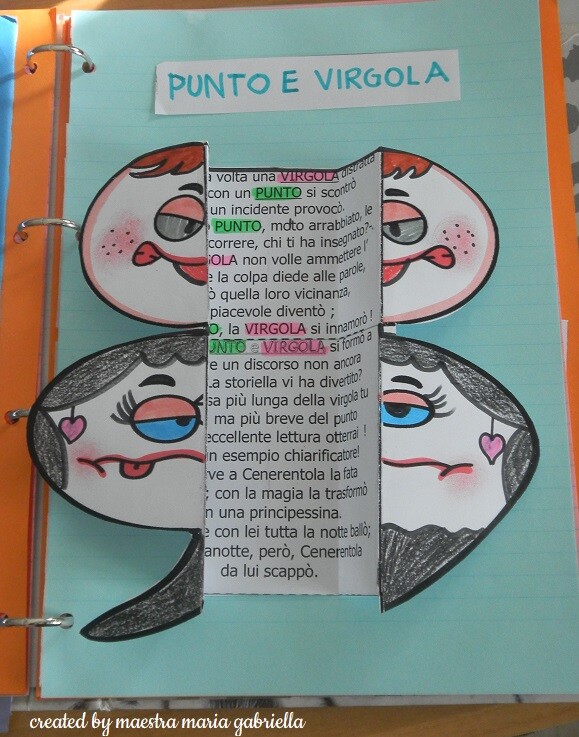 PUNTO E VIRGOLA
volta una VIRGOLA distratta
con un PUNTO si scontrò
un incidente provocò.
PUNTO, molto arrabbiato, le
correre, chi ti ha insegnato?-.
GOLA non volle ammettere l'
e la colpa diede alle parole,
ò quella loro vicinanza,
piacevole diventò ;
O, la VIRGOLA si innamorò !
UNTO e VIRGOLA si formò a
e un discorso non ancora
La storiella vi ha divertito?
sa più lunga della virgola tu
ma più breve del punto
eccellente lettura otterrai !
n esempio chiarificatore!
ve a Cenerentola la fata
; con la magia la trasformò
n una principessina.
e con lei tutta la notte ballò;
anotte, però, Cenerentola
da lui scappò.
created by maestra maria gabriella